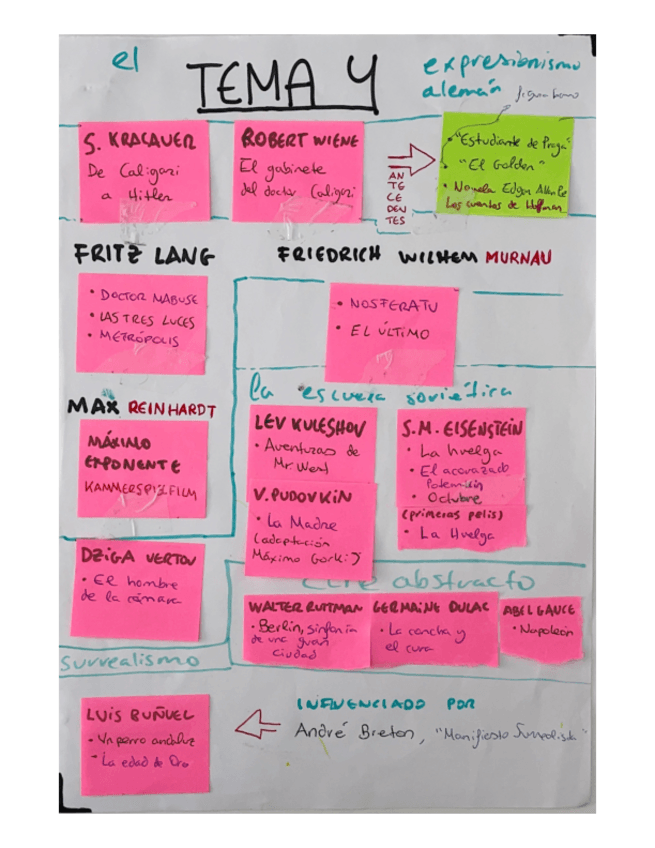 el
TEMA 4
expresionismo
alemán
S. KRACAUER
De Caligari
a Hitler
ROBERT WIENE
El gabinete
del doctor Caligari
ANTECEDENTES
• "Estudiante de Praga"
"El Golden"
• Novela Edgar Allan Poe
Los cuentos de Hoffman
FRITZ LANG
• DOCTOR MABUSE
• LAS TRES LUCES
• METRÓPOLIS
FRIEDRICH WILHEM MURNAU
• NOSFERATU
• EL ÚLTIMO
MAX REINHARDT
MÁXIMO
EXPONENTE
KAMMERSPIELFILM
la escuela soviética
LEV KULESHOV
• Aventuras de
Mr. West
S.M. EISENSTEIN
• La huelga
• El acorazado
Potemkin
• Octubre
(primeras pelis)
• La Huelga
V. PUDOVKIN
• La Madre
(adaptación
Máximo Gorki)
DZIGA VERTOV
• El hombre
de la cámara
cine abstracto
WALTER RUTTMAN
• Berlín, sinfonía
de una gran
ciudad
GERMAINE DULAC
• La concha y
el cura
ABEL GANCE
• Napoleón
surrealismo
LUIS BUÑUEL
• Un perro andaluz
• La edad de Oro
INFLUENCIADO POR
André Breton, "Manifiesto Surrealista"